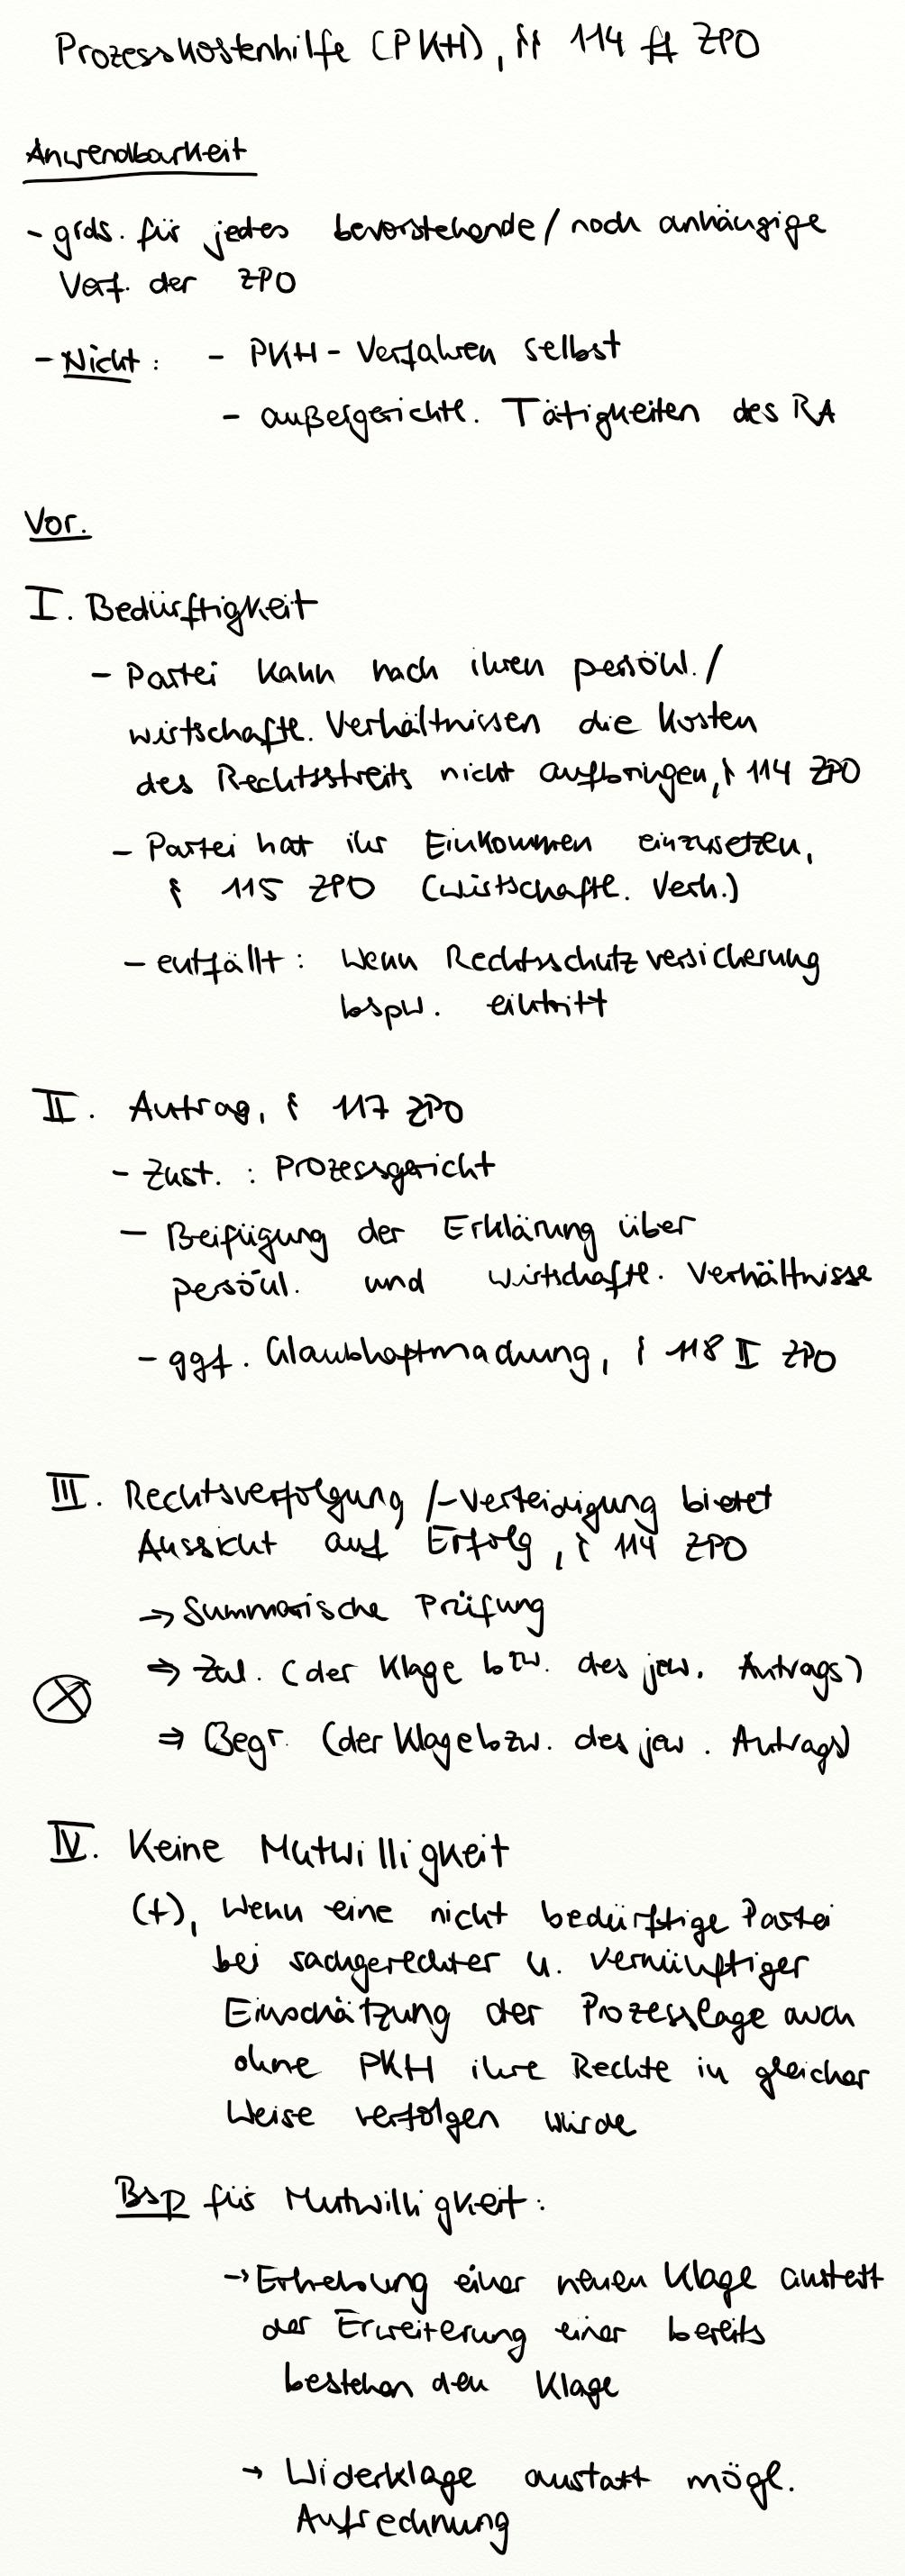 Prozesskostenhilfe (PKH), §§ 114 ff ZPO
Anwendbarkeit
- grds. für jedes bevorstehende / noch anhängige
Verf. der ZPO
- Nicht : - PKH - Verfahren selbst
- außergerichtl. Tätigkeiten des RA
Vor.
I. Bedürftigkeit
- Partei kann nach ihren persönl. /
wirtschaftl. Verhältnissen die Kosten
des Rechtsstreits nicht aufbringen, § 114 ZPO
- Partei hat ihr Einkommen einzusetzen,
§ 115 ZPO (wirtschaftl. Verh.)
- entfällt : wenn Rechtsschutzversicherung
bspw. eintritt
II. Antrag, § 117 ZPO
- Zust. : Prozessgericht
- Beifügung der Erklärung über
persönl. und wirtschaftl. Verhältnisse
- ggf. Glaubhaftmachung, § 118 II ZPO
III. Rechtsverfolgung /-verteidigung bietet
Aussicht auf Erfolg, § 114 ZPO
→ Summarische Prüfung
⇒ Zul. (der Klage bzw. des jew. Antrags)
⇒ Begr. (der Klage bzw. des jew. Antrags)
IV. Keine Mutwilligkeit
(+), wenn eine nicht bedürftige Partei
bei sachgerechter u. vernünftiger
Einschätzung der Prozesslage auch
ohne PKH ihre Rechte in gleicher
Weise verfolgen würde
Bsp für Mutwilligkeit :
→ Erhebung einer neuen Klage anstatt
der Erweiterung einer bereits
bestehenden Klage
→ Widerklage anstatt mögl.
Aufrechnung